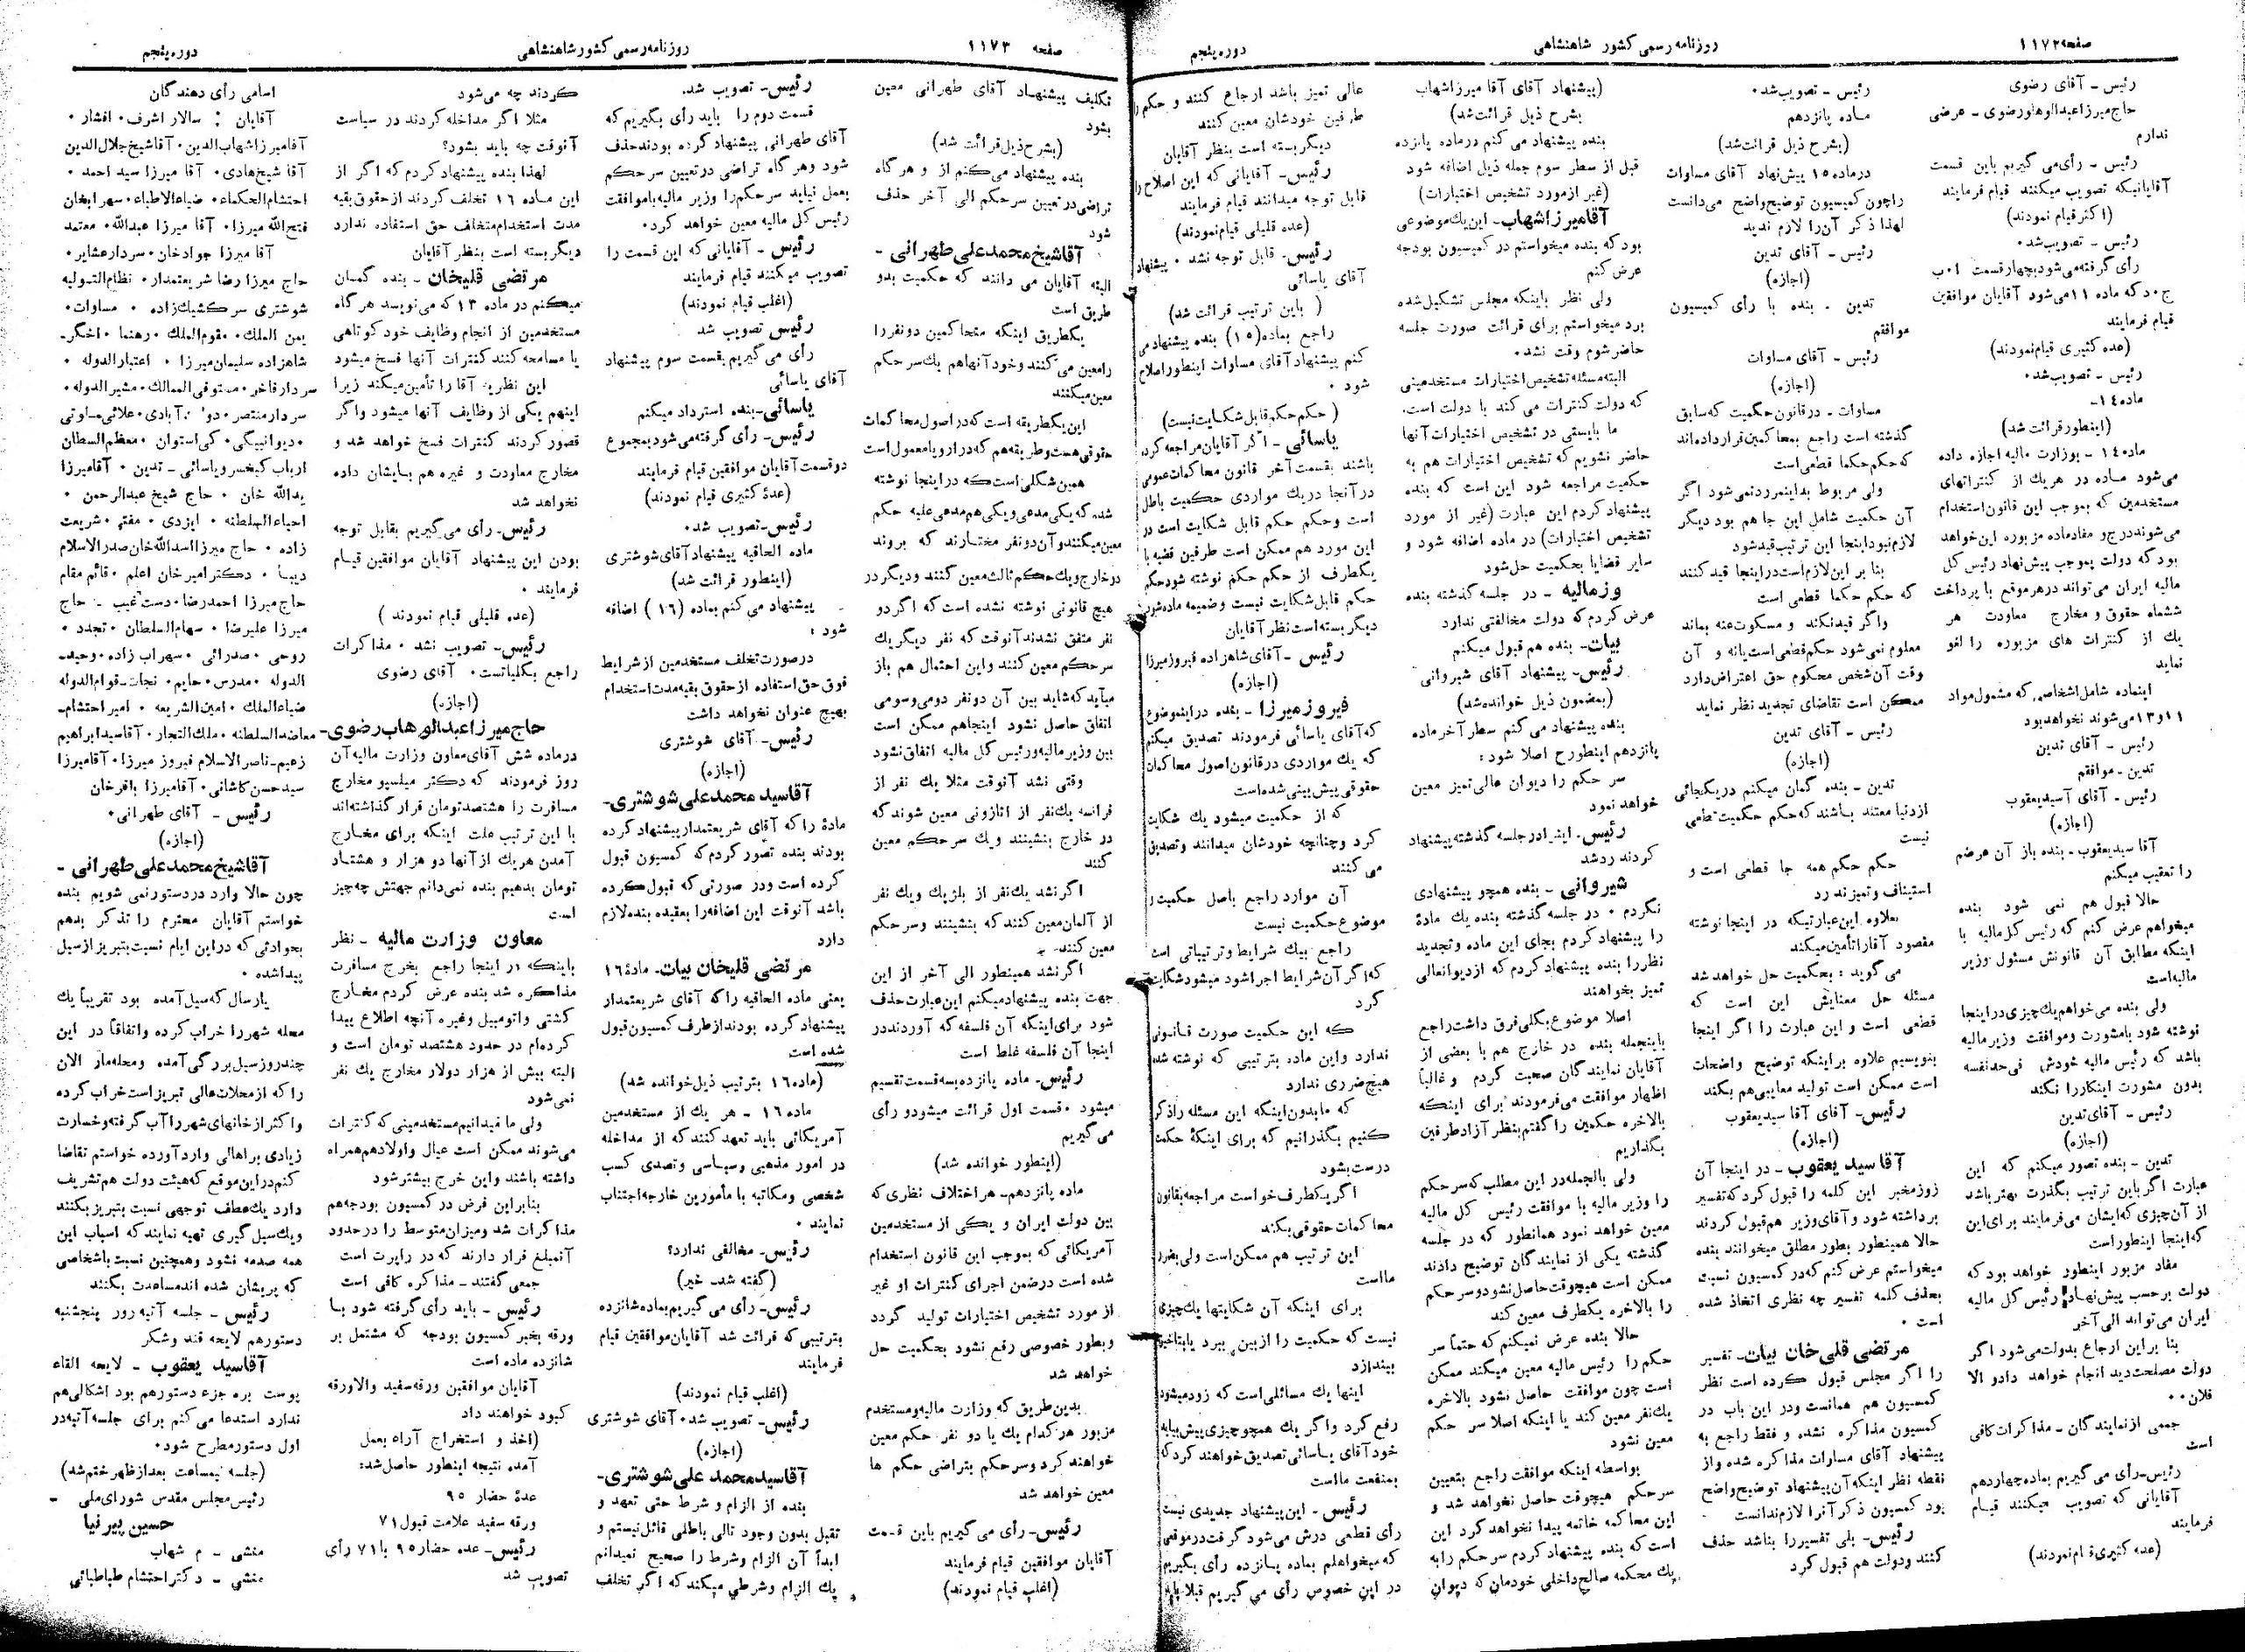 صفحه ۱۱۷۲
روزنامه رسمی کشور شاهنشاهی
دوره پنجم
رئیس ـ آقای رضوی
حاج میرزا عبدالوهاب رضوی ـ عرضی
ندارم
رئیس ـ رأی می گیریم باین قسمت
آقایانیکه تصویب میکنند قیام فرمایند
(اکثر قیام نمودند)
رئیس ـ تصویب شد.
رأی گرفته می شود بچهار قسمت ا ۰ ب
ج ۰ د که ماده ۱۱ می شود آقایان موافقین
قیام فرمایند
(عده کثیری قیام نمودند)
رئیس ـ تصویب شد.
ماده ۱۴ـ
(اینطور قرائت شد)
ماده ۱۴ ـ بوزارت مالیه اجازه داده
می شود ماده در هر یک از کنتراتهای
مستخدمین که بموجب این قانون استخدام
می شوند درج و مفاد ماده مزبوره این خواهد
بود که دولت بموجب پیش نهاد رئیس کل
مالیه ایران می تواند در هر موقع با پرداخت
ششماه حقوق و مخارج معاودت هر
یک از کنترات های مزبوره را لغو
نماید
اینماده شامل اشخاصی که مشمول مواد
۱۱ و ۱۳ می شوند نخواهد بود
رئیس ـ آقای تدین
تدین ـ موافقم
رئیس ـ آقای آسید یعقوب
(اجازه)
آقا سید یعقوب ـ بنده باز آن عرضم
را تعقیب میکنم
حالا قبول هم نمی شود بنده
میخواهم عرض کنم که رئیس کل مالیه با
اینکه مطابق آن قانونش مسئول وزیر
مالیه است
ولی بنده می خواهم یک چیزی در اینجا
نوشته شود بامشورت وموافقت وزیر مالیه
باشد که رئیس مالیه خودش فی حد نفسه
بدون مشورت اینکار را نکند
رئیس ـ آقای تدین
(اجازه)
تدین ـ بنده تصور میکنم که این
عبارت اگر باین ترتیب بگذرت بهتر باشد
از آن چیزی که ایشان می فرمایند برای این
که اینجا اینطور است
مفاد مزبور اینطور خواهد بود که
دولت برحسب پیش نهاد رئیس کل مالیه
ایران می تواند الی آخر
بنا بر این ارجاع بدولت می شود اگر
دولت مصلحت دید انجام خواهد داد و الا
فلان ۰ ۰
جمعی از نمایندگان ـ مذاکرات کافی
است
رئیس ـ رأی می گیریم بماده چهاردهم
آقایانی که تصویب میکنند قیام
فرمایند
(عده کثیری قیام نمودند)
رئیس ـ تصویب شد.
ماده پانزدهم
(بشرح ذیل قرائت شد)
در ماده ۱۵ پیش نهاد آقای مساوات
را چون کمیسیون توضیح واضح می دانست
لهذا ذکر آن را لازم ندید
رئیس ـ آقای تدین
(اجازه)
تدین ـ بنده با رأی کمیسیون
موافقم
رئیس ـ آقای مساوات
(اجازه)
مساوات ـ در قانون حکمیت که سابق
گذشته است راجع بمحاکمین قرار داده اند
که حکم حکما قطعی است
ولی مربوط بداینمورد نمی شود اگر
آن حکمیت شامل این جا هم بود دیگر
لازم نبود اینجا این ترتیب قید شود
بنا بر این لازم است در اینجا قید کنند
که حکم حکما قطعی است
واگر قید نکند و مسکوت عنه بماند
معلوم نمی شود حکم قطعی است یا نه و آن
وقت آن شخص محکوم حق اعتراض دارد
ممکن است تقاضای تجدید نظر نماید
رئیس ـ آقای تدین
(اجازه)
تدین ـ بنده گمان میکنم در یکجائی
از دنیا معتقد باشند که حکم حکمیت قطعی
نیست
حکم حکم همه جا قطعی است و
استیناف و تمیز ندرد
بعلاوه این عبارتیکه در اینجا نوشته
مقصود آقا را تأمین میکند
می گوید : بحکمیت حل خواهد شد
مسئله حل معنایش این است که
قطعی است و این عبارت را اگر اینجا
بنویسیم علاوه بر اینکه توضیح واضحات
است ممکن است تولید معایبی هم بکند
رئیس ـ آقای آقا سید یعقوب
(اجازه)
آقا سید یعقوب ـ در اینجا آن
روز مخبر این کلمه را قبول کرد که تفسیر
برداشته شود و آقای وزیر هم قبول کردند
حالا همینطور بطور مطلق میخوانند بنده
میخواستم عرض کنم که در کمیسیون نسبت
بحذف کلمه تفسیر چه نظری اتخاذ شده
است ۰
مرتضی قلی خان بیات ـ تفسیر
را اگر مجلس قبول کرده است نظر
کمسیون هم همانست ودر این باب در
کمسیون مذاکره نشده و فقط راجع به
پیشنهاد آقای مساوات مذاکره شده واز
نقطه نظر اینکه آن پیشنهاد توضیح واضح
بود کمسیون ذکر آنرا لازم ندانست
رئیس ـ بلی تفسیر را بناشد حذف
کنند و دولت هم قبول کرد
(پیشنهاد آقای آقا میرزا شهاب
بشرح ذیل قرائت شد)
بنده پیشنهاد می کنم در ماده پانزده
قبل از سطر سوم جمله ذیل اضافه شود
(غیر از مورد تشخیص اختیارات)
آقا میرزا شهاب ـ این یک موضوعی
بود که بنده میخواستم در کمیسیون بودجه
عرض کنم
ولی نظر باینکه مجلس تشکیل شده
بود میخواستم برای قرائت صورت جلسه
حاضر شوم وقت نشد.
البته مسئله تشخیص اختیارات مستخدمینی
که دولت کنترات می کند با دولت است.
ما بایستی در تشخیص اختیارات آنها
حاضر نشویم که تشخیص اختیارات هم به
حکمیت مراجعه شود این است که بنده
پیشنهاد کردم این عبارت (غیر از مورد
تشخیص اختیارات) در ماده اضافه شود و
سایر قضایا بحکمیت حل شود
وزمالیه ـ در جلسه گذشته بنده
عرض کردم که دولت مخالفتی ندارد
بیات ـ بنده هم قبول میکنم
رئیس ـ پیشنهاد آقای شیروانی
(بمضمون ذیل خوانده شد)
بنده پیشنهاد می کنم سطر آخر ماده
پانزدهم اینطور ح اصلا شود :
سر حکم را دیوان عالی تمیز معین
خواهد نمود
رئیس ـ اینرا در جلسه گذشته پیشنهاد
کردند رد شد
شیروانی ـ بنده همچو پیشنهادی
نکردم ۰ در جلسه گذشته بنده یک مادۀ
را پیشنهاد کردم بجای این ماده وتجدید
نظر را بنده پیشنهاد کردم که از دیوانعالی
تمیز بخواهند
اصلا موضوع بکلی فرق داشت راجع
باینجمله بنده در خارج هم با بعضی از
آقایان نمایندگان صحبت کردم و غالباً
اظهار موافقت می فرمودند برای اینکه
بالاخره حکمین را گفتم بنظر آزاد طرفین
بگذاریم
ولی بالجمله در این مطلب که سر حکم
را وزیر مالیه با موافقت رئیس کل مالیه
معین خواهد نمود همانطور که در جلسه
گذشته یکی از نمایندگان توضیح دادند
ممکن است هیچوقت حاصل نشود و سر حکم
را بالاخره یکطرف معین کند
حالا بنده عرض نمیکنم که حتماً سر
حکم را رئیس مالیه معین میکند ممکن
است چون موافقت حاصل نشود بالاخره
یکنفر معین کند یا اینکه اصلا سر حکم
معین نشود
بواسطه اینکه موافقت راجع بتعیین
سر حکم هیچوقت حاصل نخواهد شد و
این محاکمه خاتمه پیدا نخواهد کرد این
است که بنده پیشنهاد کردم سر حکم را به
یک محکمه صالح داخلی خودمان که دیوان
عالی تمیز باشد ارجاع کنند و حکم را
طرفین خودشان معین کنند
دیگر بسته است بنظر آقایان
رئیس ـ آقایانی که این اصلاح را
قابل توجه میدانند قیام فرمایند
(عده قلیلی قیام نمودند)
رئیس ـ قابل توجه نشد ۰ پیشنهاد
آقای یاسائی
( باین ترتیب قرائت شد)
راجع بماده (۱۵) بنده پیشنهاد می
کنم پیشنهاد آقای مساوات اینطور اصلاح
شود ۰
( حکم حکم قابل شکایت نیست)
یاسائی ـ اگر آقایان مراجعه کرده
باشند بقسمت آخر قانون محاکمات عمومی
در آنجا در یک مواردی حکمیت باطل
است وحکم حکم قابل شکایت است در
این مورد هم ممکن است طرفین قضیه با
یکطرف از حکم حکم نوشته شود حکم
حکم قابل شکایت نیست وضمیمه ماده شود
دیگر بسته است نظر آقایان
رئیس ـ آقای شاهزاده فیروز میرزا
(اجازه)
فیروز میرزا ـ بنده در اینموضوع
که آقای یاسائی فرمودند تصدیق میکنم
که یک مواردی در قانون اصول محاکمات
حقوقی پیش بینی شده است
که از حکمیت میشود یک شکایت
کرد و چنانچه خودشان میدانند و تصدیق
می کنند
آن موارد راجع باصل حکمیت و
موضوع حکمیت نیست
راجع بیک شرایط وترتیباتی است
که اگر آن شرایط اجرا شود میشود شکایت
کرد
که این حکمیت صورت قانونی
ندارد و این ماده بترتیبی که نوشته شده
هیچ ضرری ندارد
که ما بدون اینکه این مسئله را ذکر
کنیم بگذرانیم که برای اینکه حکمت
درست بشود
اگر یکطرف خواست مراجعه بقانون
محاکمات حقوقی بکند
این ترتیب هم ممکن است ولی بضرر
ما است
برای اینکه آن شکایتها یک چیزی
نیست که حکمیت را از بین ببرد یا بتأخیر
بیندازد
اینها یک مسائلی است که زود میشود
رفع کرد واگر یک همچو چیزی پیش بیاید
خود آقای یاسائی تصدیق خواهند کرد که
بمنفعت ما است
رئیس ـ این پیشنهاد جدیدی نیست
رأی قطعی درش می شود گرفت در موقعی
که میخواهیم بماده پانزده رأی بگیریم
در این خصوص رأی می گیریم قبلا باید
صفحه ۱۱۷۳
روزنامه رسمی کشور شاهنشاهی
دوره پنجم
تکلیف پیشنهاد آقای طهرانی معین
بشود
(بشرح ذیل قرائت شد)
بنده پیشنهاد می کنم از و هر گاه
تراضی در تعیین سر حکم الی آخر حذف
شود
آقا شیخ محمد علی طهرانی ـ
البته آقایان می دانند که حکمیت بدو
طریق است
یکطریق اینکه متحاکمین دونفر را
رامعین می کنند وخود آنها هم یک سر حکم
معین میکنند
این یکطریقه است که در اصول محاکمات
حقوقی هست و طریقه هم که در اروپا معمول است
همین شکلی است که در اینجا نوشته
شده که یکی مدعی و یکی هم مدعی علیه حکم
معین میکنند و آن دو نفر مختارند که بروند
در خارج و یک حکم ثالث معین کنند و دیگر در
هیچ قانونی نوشته نشده است که اگر دو
نفر متفق نشدند آنوقت که نفر دیگر یک
سر حکم معین کنند واین احتمال هم باز
میآید که شاید بین آن دو نفر دومی و سومی
اتفاق حاصل نشود اینجاهم ممکن است
بین وزیر مالیه و رئیس کل مالیه اتفاق نشود
وقتی نشد آنوقت مثلا یک نفر از
فرانسه یک نفر از اتازونی معین شوند که
در خارج بنشینند ویک سر حکم معین
کنند
اگر نشد یک نفر از بلژیک ویک نفر
از آلمان معین کنند که بنشینند و سر حکم
معین کنند ـ
اگر نشد همینطور الی آخر از این
جهت بنده پیشنهاد میکنم این عبارت حذف
شود برای اینکه آن فلسفه که آوردند در
اینجا آن فلسفه غلط است
رئیس ـ ماده پانزده بسه قسمت تقسیم
میشود ۰ قسمت اول قرائت میشود و رأی
می گیریم
(اینطور خوانده شد)
ماده پانزدهم ـ هر اختلاف نظری که
بین دولت ایران و یکی از مستخدمین
آمریکائی که بموجب این قانون استخدام
شده است در ضمن اجرای کنترات او غیر
از مورد تشخیص اختیارات تولید گردد
وبطور خصوصی رفع نشود بحکمیت حل
خواهد شد
بدین طریق که وزارت مالیه و مستخدم
مزبور هر کدام یک یا دو نفر حکم معین
خواهند کرد وسر حکم بتراضی حکم ها
معین خواهد شد
رئیس ـ رأی می گیریم باین قسمت
آقایان موافقین قیام فرمایند
(اغلب قیام نمودند)
رئیس ـ تصویب شد.
قسمت دوم را باید رأی بگیریم که
آقای طهرانی پیشنهاد کرده بودند حذف
شود وهر گاه تراضی در تعیین سر حکم
بعمل نیاید سر حکم را وزیر مالیه با موافقت
رئیس کل مالیه معین خواهد کرد.
رئیس ـ آقایانی که این قسمت را
تصویب میکنند قیام فرمایند
(اغلب قیام نمودند)
رئیس تصویب شد
رأی می گیریم بقسمت سوم پیشنهاد
آقای یاسائی
یاسائی ـ بنده استرداد میکنم
رئیس ـ رأی گرفته می شود بمجموع
دو قسمت آقایان موافقین قیام فرمایند
(عدۀ کثیری قیام نمودند)
رئیس ـ تصویب شد.
ماده الحاقیه پیشنهاد آقای شوشتری
(اینطور قرائت شد)
پیشنهاد می کنم بماده (۱۶) اضافه
شود :
در صورت تخلف مستخدمین از شرایط
فوق حق استفاده از حقوق بقیه مدت استخدام
بهیچ عنوان نخواهد داشت
رئیس ـ آقای شوشتری
(اجازه)
آقا سید محمد علی شوشتری ـ
مادۀ را که آقای شریعتمدار پیشنهاد کرده
بودند بنده تصور کردم که کمسیون قبول
کرده است ودر صورتی که قبول کرده
باشد آنوقت این اضافه را بعقیده بنده لازم
دارد
مرتضی قلیخان بیات ـ مادۀ ۱۶
یعنی ماده الحاقیه را که آقای شریعتمدار
پیشنهاد کرده بودند از طرف کمسیون قبول
شده است
(ماده ۱۶ بترتیب ذیل خوانده شد)
ماده ۱۶ ـ هر یک از مستخدمین
آمریکائی باید تعهد کنند که از مداخله
در امور مذهبی وسیاسی وتصدی کسب
شخصی ومکاتبه با مأمورین خارجه اجتناب
نمایند ۰
رئیس ـ مخالفی ندارد؟
(گفته شد ـ خیر)
رئیس ـ رأی می گیریم بماده شانزده
بترتیبی که قرائت شد آقایان موافقین قیام
فرمایند
(اغلب قیام نمودند)
رئیس ـ تصویب شد ۰ آقای شوشتری
(اجازه)
آقا سید محمد علی شوشتری ـ
بنده از الزام و شرط حتی تعهد و
تقبل بدون وجود تالی باطلی قائل نیستم و
ابداً آن الزام وشرط را صحیح نمیدانم
یک الزام وشرطی میکند که اگر تخلف
کردند چه می شود
مثلا اگر مداخله کردند در سیاست
آنوقت چه باید بشود؟
لهذا بنده پیشنهاد کردم که اگر از
این ماده ۱۶ تخلف کردند از حقوق بقیه
مدت استخدام متخلف حق استفاده ندارد
دیگر بسته است بنظر آقایان
مرتضی قلیخان ـ بنده گمان
میکنم در ماده ۱۳ که می نویسد هر گاه
مستخدمین از انجام وظایف خود کوتاهی
یا مسامحه کنند کنترات آنها فسخ میشود
این نظریه آقا را تأمین میکند زیرا
اینهم یکی از وظایف آنها میشود واگر
قصور کردند کنترات فسخ خواهد شد و
مخارج معاودت و غیره هم بایشان داده
نخواهد شد
رئیس ـ رأی می گیریم بقابل توجه
بودن این پیشنهاد آقایان موافقین قیام
فرمایند ۰
(عده قلیلی قیام نمودند )
رئیس ـ تصویب نشد ۰ مذاکرات
راجع بکلیاتست ۰ آقای رضوی
(اجازه)
حاج میرزا عبدالوهاب رضوی ـ
در ماده شش آقای معاون وزارت مالیه آن
روز فرمودند که دکتر میلسپو مخارج
مسافرت را هشتصد تومان قرار گذاشته اند
با این ترتیب علت اینکه برای مخارج
آمدن هر یک از آنها دو هزار و هشتاد
تومان بدهیم بنده نمی دانم جهتش چه چیز
است
معاون وزارت مالیه ـ نظر
باینکه در اینجا راجع بخرج مسافرت
مذاکره شد بنده عرض کردم مخارج
کشتی واتومبیل وغیره آنچه اطلاع پیدا
کرده ام در حدود هشتصد تومان است و
البته بیش از هزار دولار مخارج یک نفر
نمی شود
ولی ما نمیدانیم مستخدمینی که کنترات
می شوند ممکن است عیال و اولاد هم همراه
داشته باشند واین خرج بیشتر شود
بنابراین فرض در کمسیون بودجه هم
مذاکرات شد ومیزان متوسط را در حدود
آنمبلغ قرار دارند که در راپرت است
جمعی گفتند ـ مذاکره کافی است
رئیس ـ باید رأی گرفته شود با
ورقه بخبر کمسیون بودجه که مشتمل بر
شانزده ماده است
آقایان موافقین ورقه سفید و الا ورقه
کبود خواهند داد
(اخذ و استخراج آراء بعمل
آمده نتیجه اینطور حاصل شد:
عدۀ حضار ۹۵
ورقه سفید علامت قبول ۷۱
رئیس ـ عده حضار ۹۵ با ۷۱ رأی
تصویب شد
اسامی رأی دهندگان
آقایان : سالار اشرف ۰ افشار ۰
آقا میرزا شهاب الدین ۰ آقا شیخ جلال الدین
آقا شیخ هادی ۰ آقا میرزا سید احمد ۰
احتشام الحکماء ۰ ضیاء الاطباء ۰ سهراب خان
فتح الله میرزا ۰ آقا میرزا عبدالله ۰ معتمد
آقا میرزا جواد خان ۰ سردار عشایر ۰
حاج میرزا رضا شریعتمدار ۰ نظام التولیه
شوشتری سرکشیک زاده ۰ مساوات ۰
یمن الملک ۰ مقوم الملک ۰ رهنما ۰ اخگر ـ
شاهزاده سلیمان میرزا ۰ اعتبار الدوله ۰
سردار فاخر ۰ مستوفی الممالک ۰ مشیر الدوله ۰
سردار منتصر ۰ دولت آبادی ۰ علائی ۰
دیوانبیگی ۰ کی استوان ۰ معظم السلطان
ارباب کیخسرو یاسائی ـ تدین ۰ آقا میرزا
یدالله خان ۰ حاج شیخ عبدالرحمن ۰
احیاء السلطنه ۰ ایزدی ۰ مفتی ۰ شریعت
زاده ۰ حاج میرزا اسدالله خان صدر الاسلام
دیبا ۰ دکتر امیر خان اعلم ۰ قائم مقام
حاج میرزا احمد رضا ۰ دست غیب ـ حاج
میرزا علیرضا ۰ سهام السلطان ۰ تجدد ۰
روحی ۰ صدرائی ۰ سهراب زاده ۰ وحید ـ
الدوله ۰ مدرس ۰ حایم ۰ نجات ـ قوام الدوله
ضیاء الملک ۰ امین الشریعه ۰ امیر احتشام ـ
معاضد السلطنه ۰ ملک التجار ۰ آقا سید ابراهیم
زعیم ـ ناصر الاسلام فیروز میرزا ۰ آقا میرزا
سید حسن کاشانی ۰ آقا میرزا باقر خان
رئیس ـ آقای طهرانی ۰
(اجازه)
آقا شیخ محمد علی طهرانی ـ
چون حالا وارد در دستور نمی شویم بنده
خواستم آقایان محترم را تذکر بدهم
بحوادثی که در این ایام نسبت بتبریز از سیل
پیدا شده ۰
پارسال که سیل آمده بود تقریباً یک
محله شهر را خراب کرده واتفاقاً در این
چند روز سیل بزرگی آمده ومحله مار الان
را که از محلات عالی تبریز است خراب کرده
واکثر از خانهای شهر را آب گرفته وخسارت
زیادی بر اهالی وارد آورده خواستم تقاضا
کنم در این موقع که هیئت دولت هم تشریف
دارد یک عطف توجهی نسبت بتبریز بکنند
ویک سیل گیری تهیه نمایند که اسباب این
همه صدمه نشود وهمچنین نسبت باشخاصی
که پریشان شده اند مساعدت بکنند
رئیس ـ جلسه آتیه روز پنجشنبه
دستورهم لایحه قند وشکر
آقا سید یعقوب ـ لایحه القاء
پوست بره جزء دستورهم بود اشکالی هم
ندارد استدعا می کنم برای جلسه آتیه در
اول دستور مطرح شود.
(جلسه نیمساعت بعد از ظهر ختم شد)
رئیس مجلس مقدس شورای ملی ـ
حسین پیرنیا
منشی ـ م شهاب
منشی ـ دکتر احتشام طباطبائی